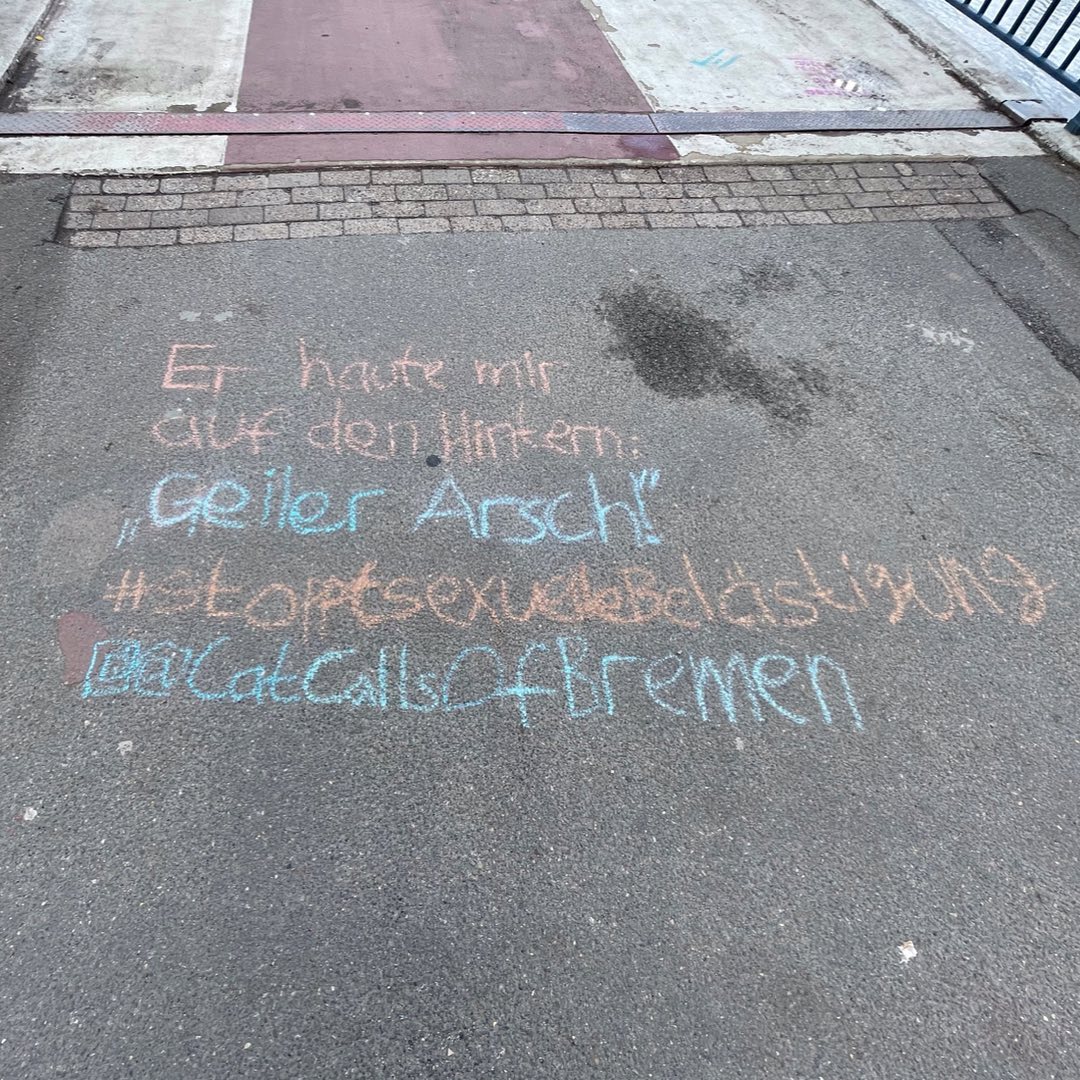 Er haute mir
auf den Hintern:
„Geiler Arsch!"
#stopptsexuelleBelästigung
@CatCallsOfBremen